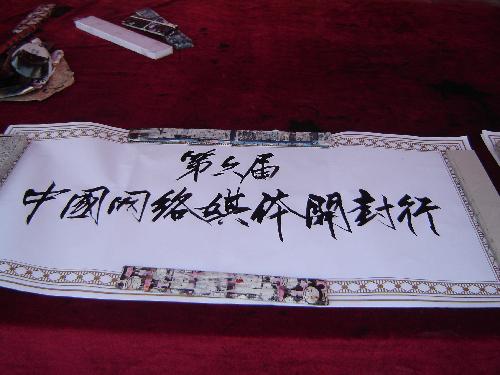 第六届
中國网络媒体開封行